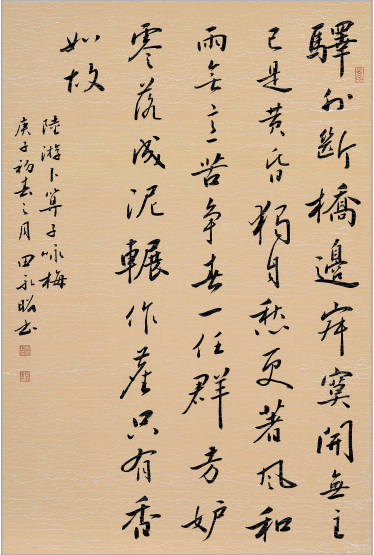 驛外斷橋邊寂寞開無主
已是黄昏獨自愁更著風和
雨無意苦争春一任群芳妒
零落成泥輾作塵只有香
如故
陸游卜算子咏梅
庚子初春之月田永昭书